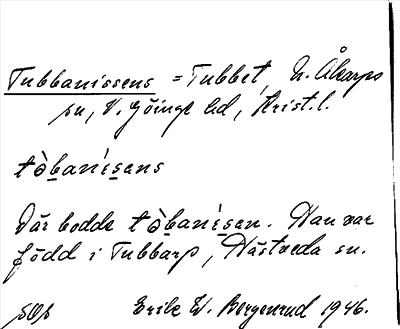 Tubbanissens = Tubbet, N. Åkarps
sn, V. Göinge hd, Krist. l.
tòbanísens
Där bodde tòbanísen. Han var
född i Tubbarp, Nästveda sn.
Erik W. Bergenrud 1946.